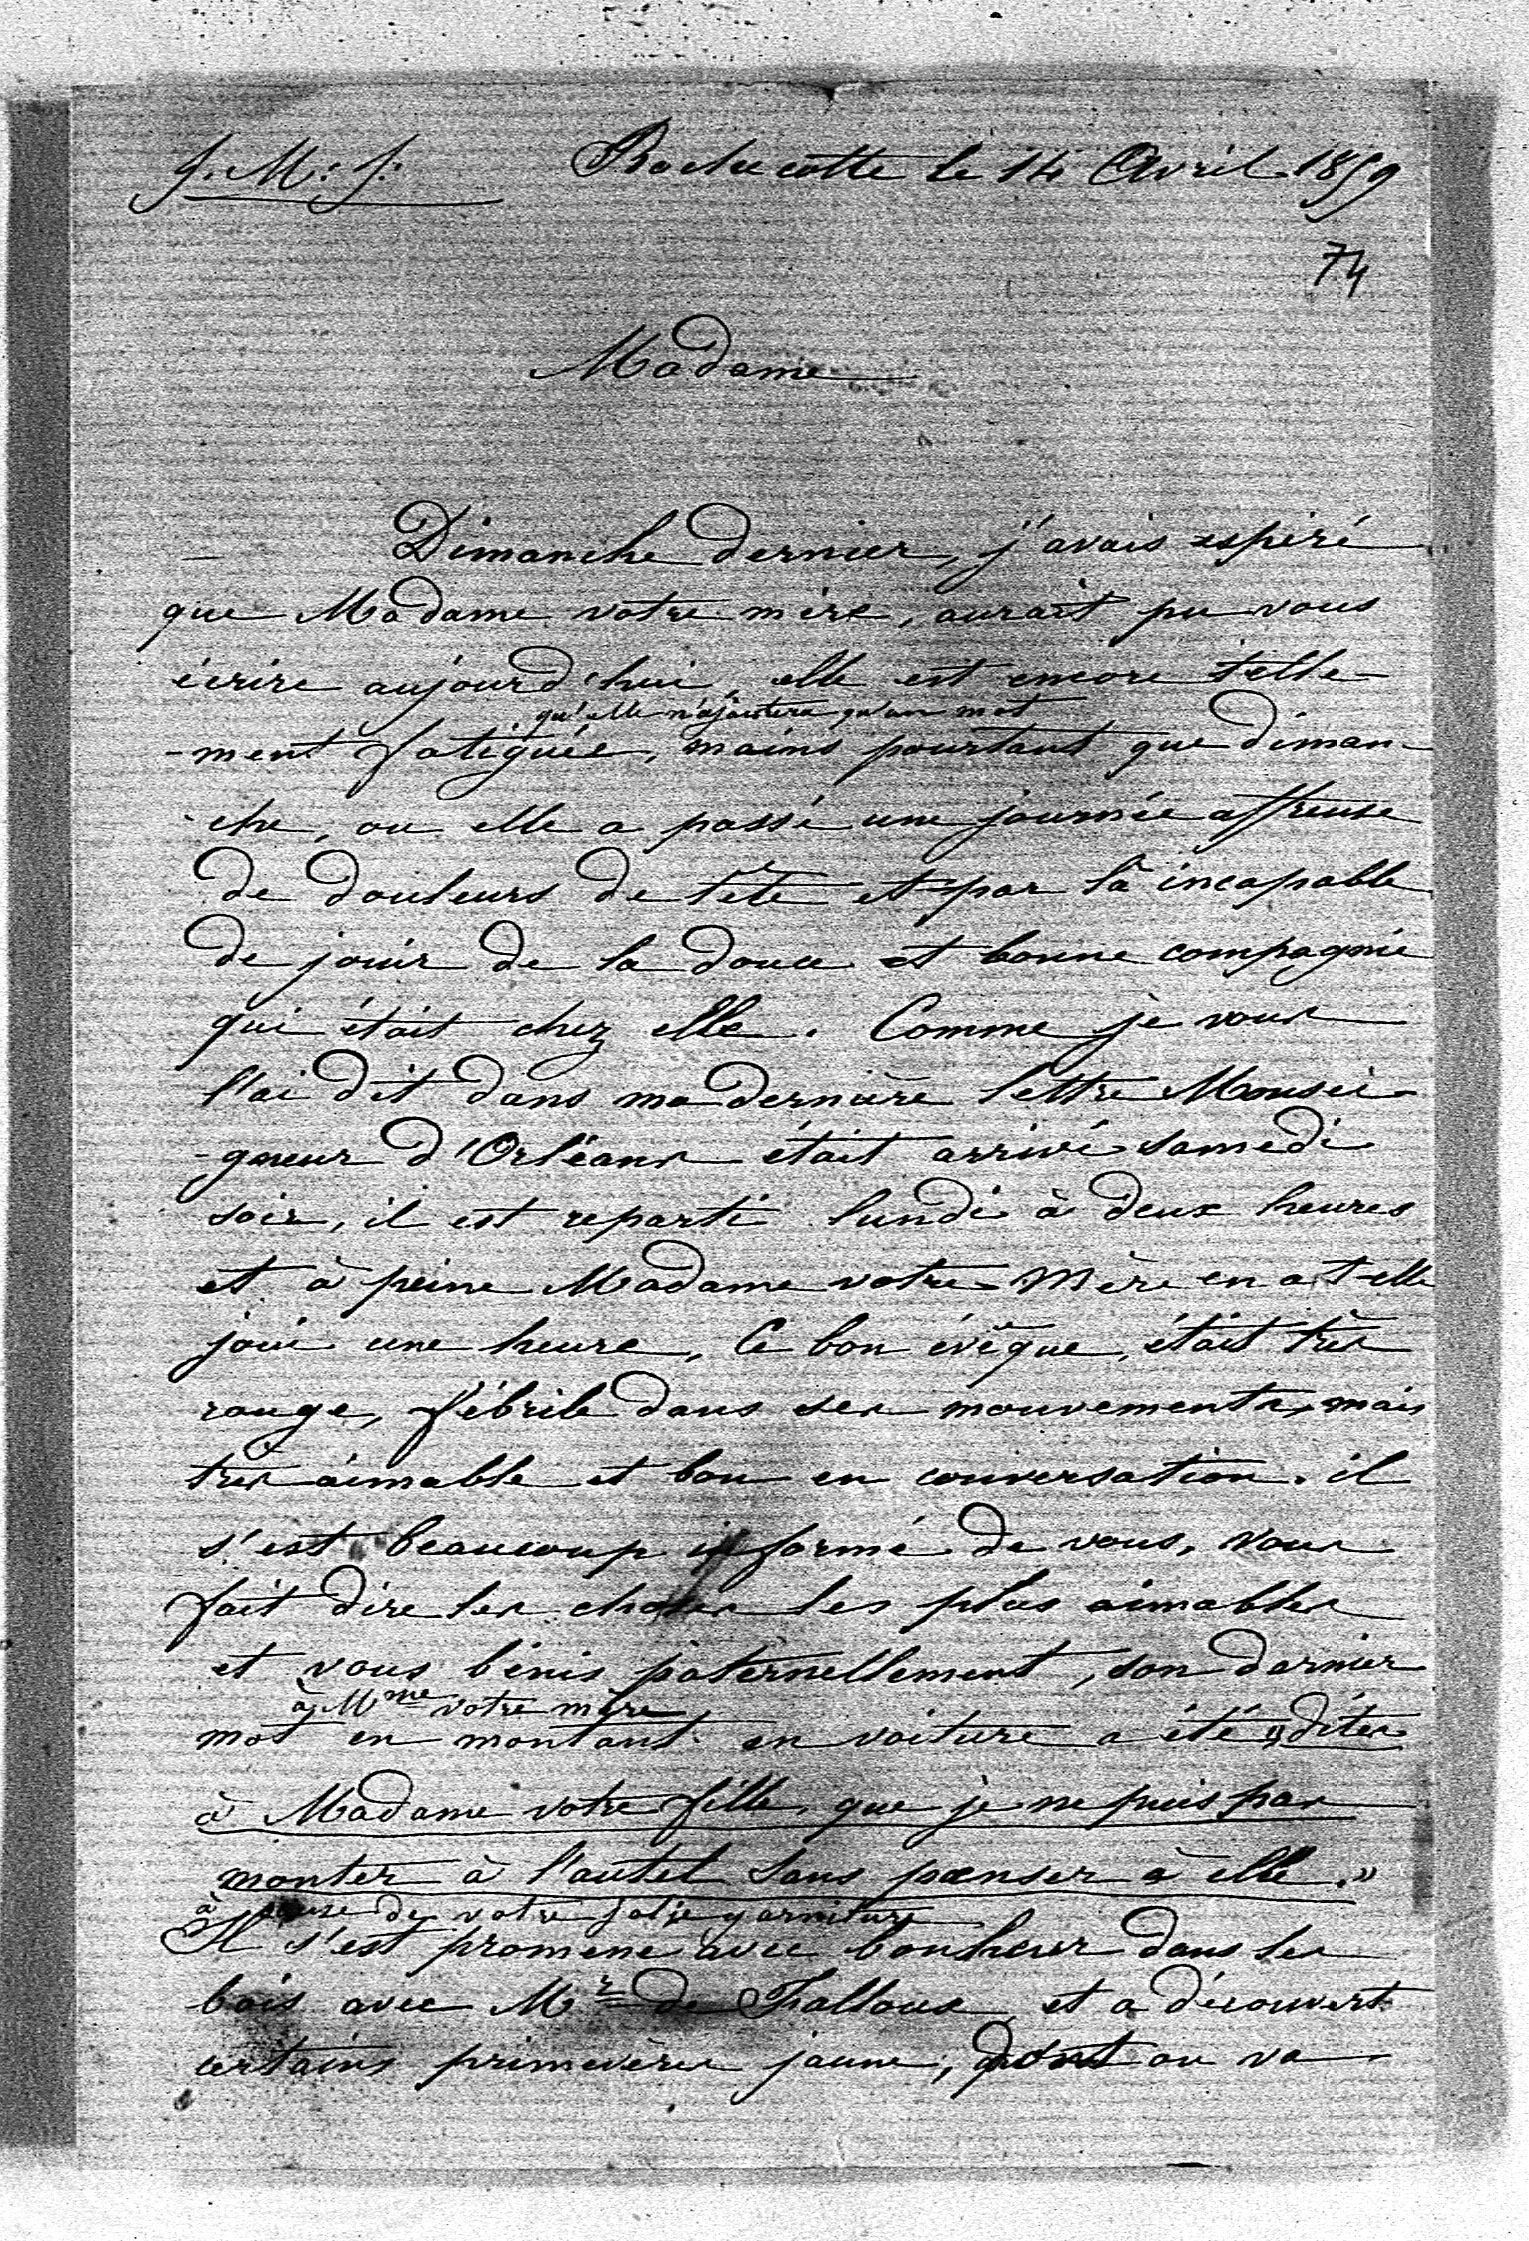 J. M. J. Rochecotte le 14 Avril 1859
74
Madame
Dimanche dernier, j'avais espéré
que Madame votre mère, aurait pu vous
écrire aujourd'hui, elle est encore telle-
qu'elle n'ajoutera qu'un mot
-ment fatiguée, moins pourtant que diman-
-che, ou elle a passé une journée affreuse
de douleurs de tête et par là incapable
de jouir de la douce et bonne compagnie
qui était chez elle. Comme je vous
l'ai dit dans ma dernière lettre Monsei-
-gneur d'Orléans était arrivé samedi
soir, il est reparti lundi à deux heures
et à peine Madame votre Mère en a t-elle
joui une heure, Ce bon évêque, était très
rouge, fébrile dans ses mouvements, mais
très aimable et bon en conversation. il
s'est beaucoup informé de vous, vous
fait dire les choses les plus aimables
et vous bénis paternellement, son dernier
à Mme votre mère
mot en montant en voiture a été "dites
à Madame votre fille, que je ne puis pas
monter à l'autel sans penser à elle."
à cause de votre jolie garniture
Il s'est promené avec bonheur dans les
bois avec Mr de Falloux et a découvert
certains primevères jaune, dont on va